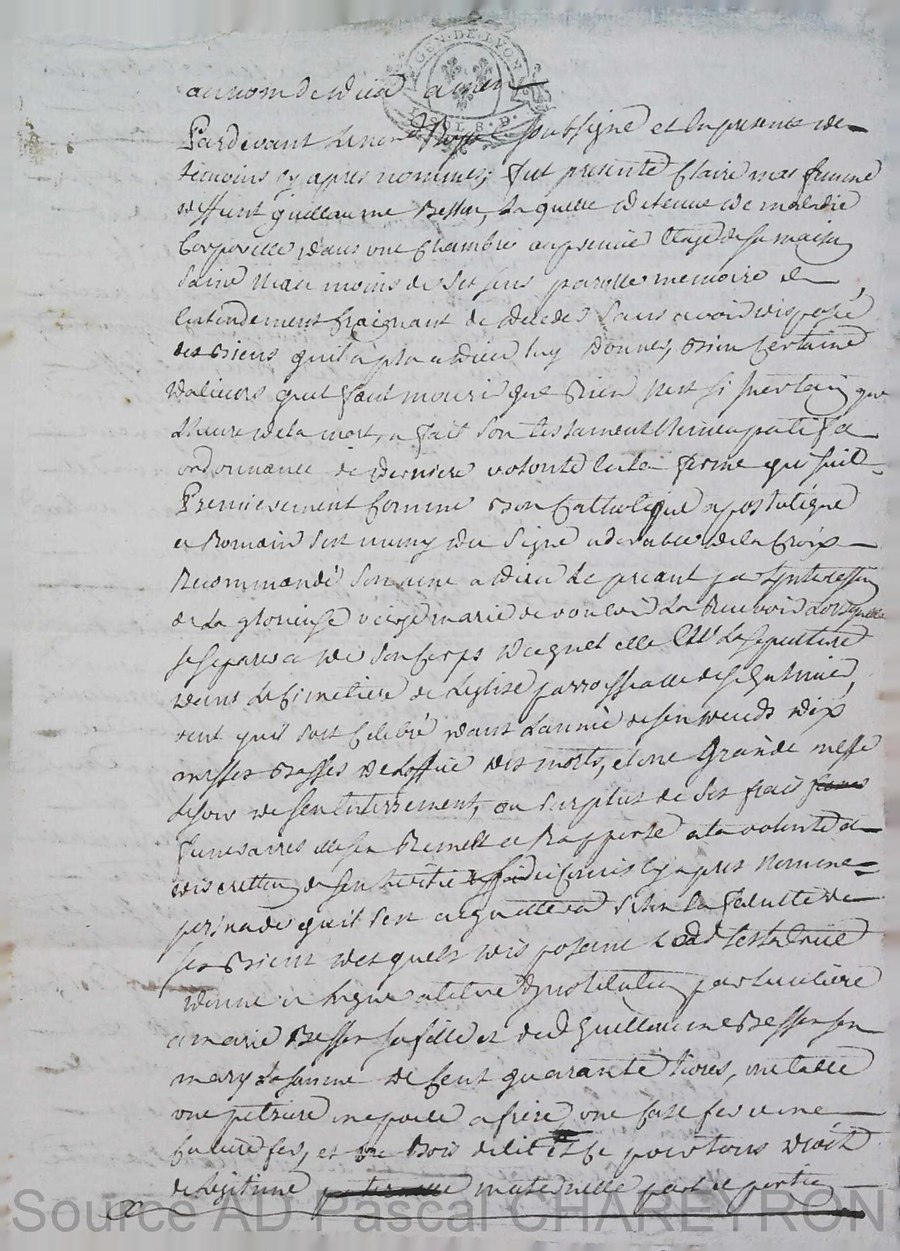 GEN. DE LYON
au nom de dieu amen
Pardevant le no.re Royal soussigné et en presence de
témoins cy apres nommés, fut presente Claire mas femme
deffunt guillaume Besson, laquelle detenue de maladie
Corporelle, dans une Chambre au premie Etage de sa maison
saine neau moins de ses sens parolle memoire et
Entendement Craignant de deceder sans avoir disposé
des Biens quil a plu a dieu luy donner, Bien Certaine
dalieurs quil faut mourir que Rien nest si incertain que
Lheure de la mort, a fait son testament et
ordonnance de derniere volonté en la forme que suit
Premierement Comme Bon Catholique apostolique
et Romain sest muny du signe adorable de la Croix
Recommandé son ame a dieu Le priant par Lintercession
de La glorieuse vierge marie de vouloir La Recevoir Lorsquelle
se separera de son Corps duquel elle Elit La sepulture
dans Le Cimetiere de Leglise parroissialle de
veut quil soit Celebré dans Lannée de son deceds dix
messes Basses de Loffice des morts, et une Grande messe
Le jour de son Enterrement, au surplus de ses frais
funeraires elle sen Remet et Rapporte a la volonté et
discretion de son heritier Cy apres nommé
persuadé quil sen aquittera selon la faculté de
ses Biens desquels disposant Lad testatrice
donne et legue a titre dinstitution particuliere
a marie Besson sa fille et dud Guillaume Besson son
mary La somme de Cent quarante livres, une table
une petriere une poele a frire, une
et un Bois de lit et ce pour tous droit
de Legitime maternelle part et portion
Source AD Pascal CHAREYRON